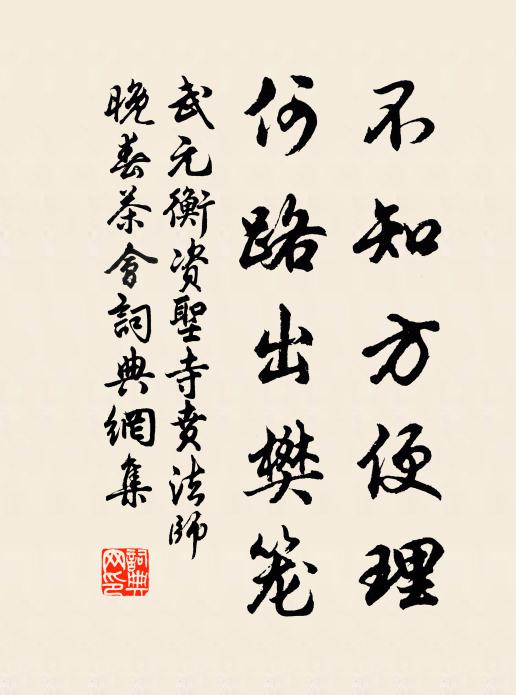 不知方便理
何路出樊笼
武元衡资聖寺賁法師
晚春茶會詞典網集
詞典网印